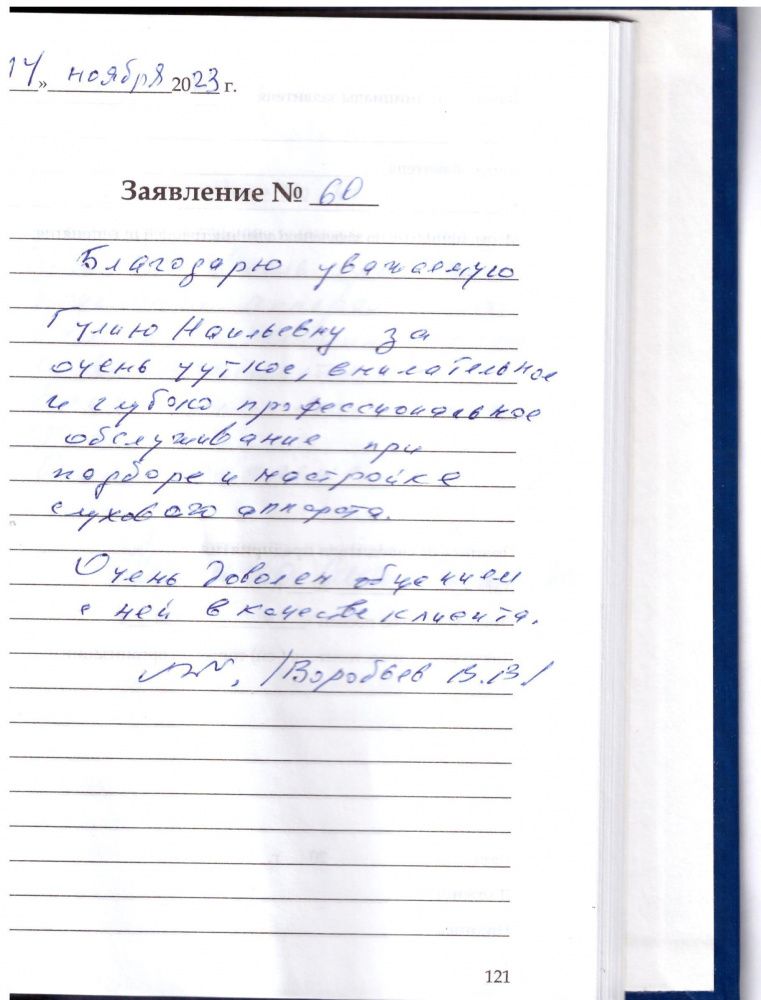 14» ноября 2023 г.
Заявление № 60
Благодарю уважаемую
Гулию Наильевну за
очень чуткое, внимательное
и глубоко профессиональное
обслуживание при
подборе и настройке
слухового аппарата.
Очень доволен общением
с ней в качестве клиента.
/Воробьев В.В./
121